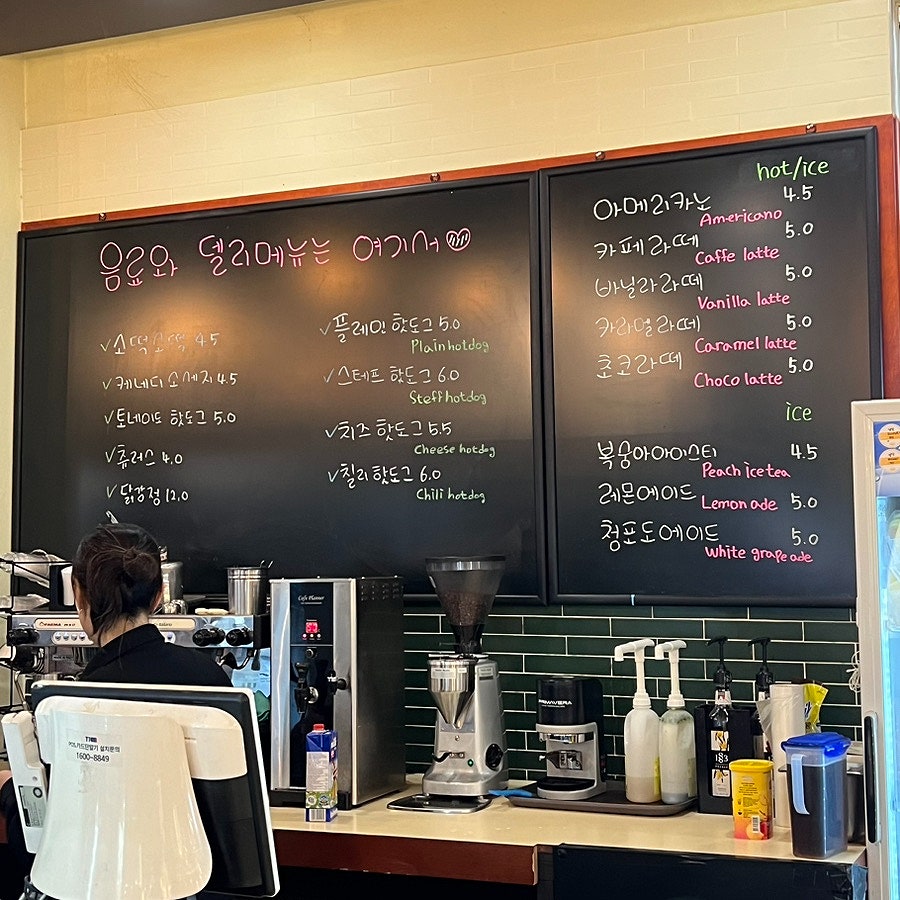 음료와 델리메뉴는 여기서
소떡소떡 4.5
케네디 소세지 4.5
토네이도 핫도그 5.0
츄러스 4.0
닭강정 12.0
플레인 핫도그 5.0
Plain hotdog
스테프 핫도그 6.0
Steff hotdog
치즈 핫도그 5.5
Cheese hotdog
칠리 핫도그 6.0
Chili hotdog
hot/ice
아메리카노 4.5
Americano
카페라떼 5.0
Caffe latte
바닐라라떼 5.0
Vanilla latte
카라멜라떼 5.0
Caramel latte
초코라떼 5.0
Choco latte
ice
복숭아아이스티 4.5
Peach icetea
레몬에이드 5.0
Lemon ade
청포도에이드 5.0
White grape ade
Cafe Planner
PRIMAVERA
1883
POS,카드단말기 설치문의
1600-8849